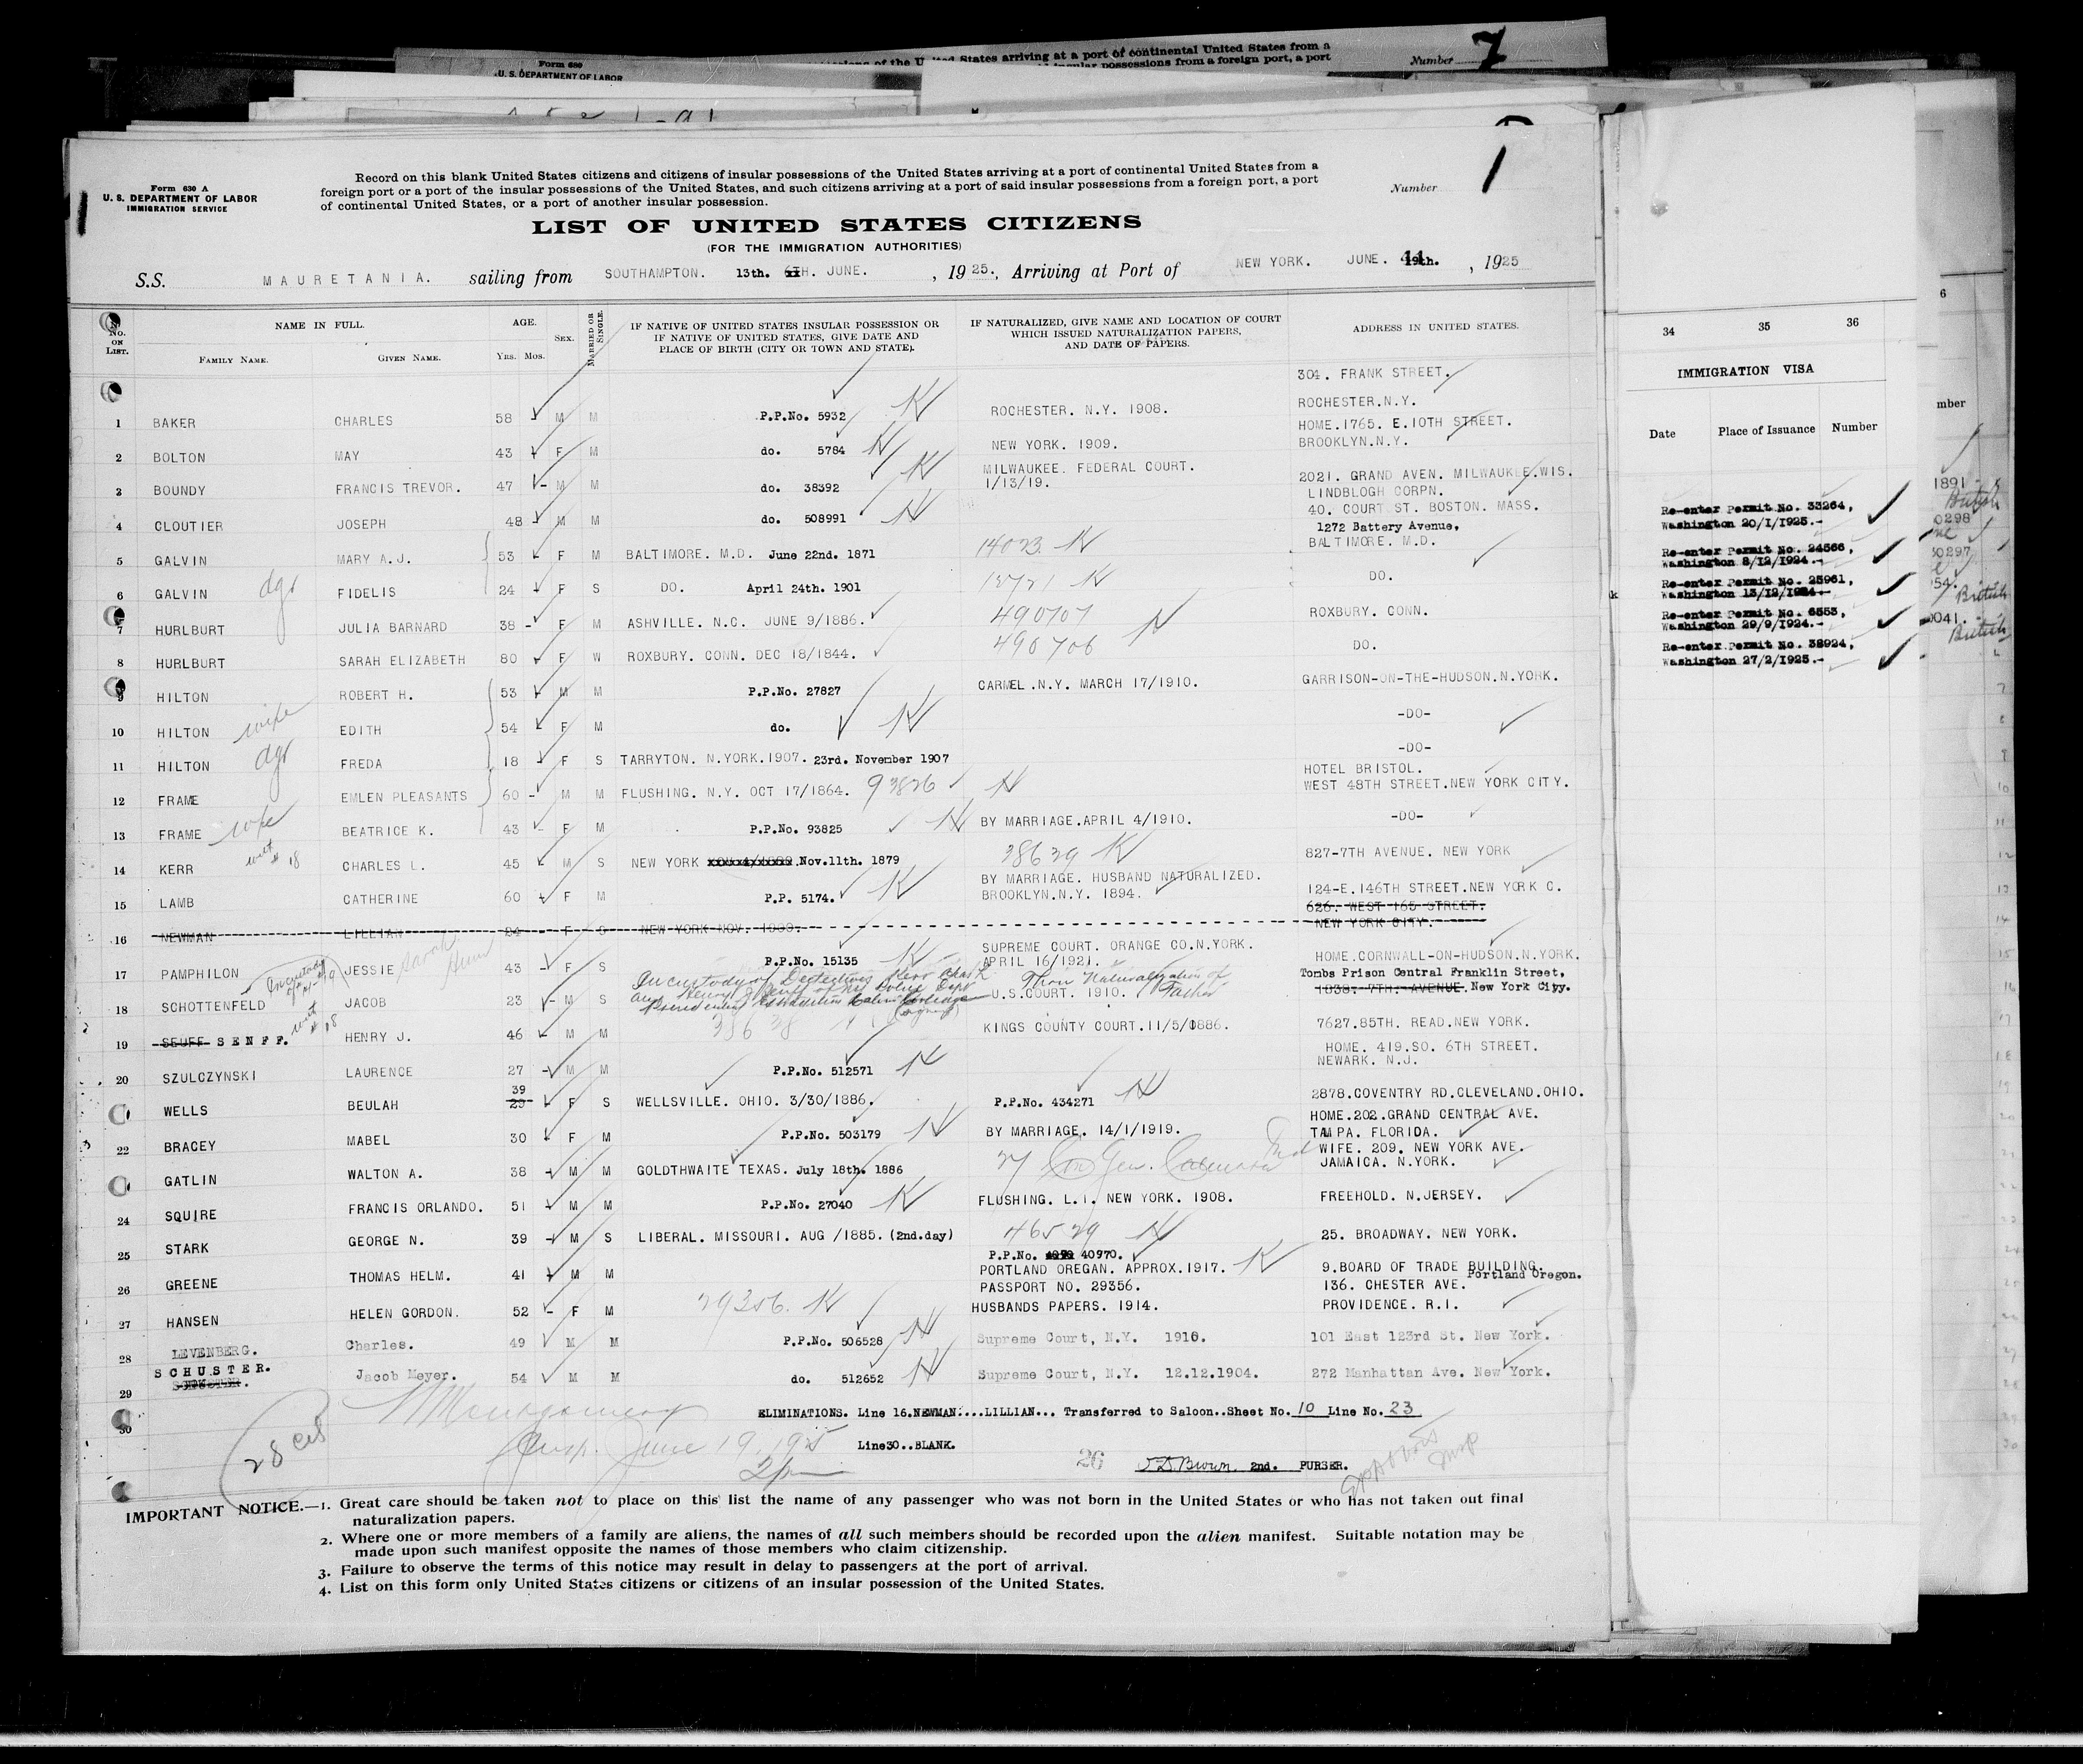 Form 680
U. S. DEPARTMENT OF LABOR
States arriving at a port of continental United States from a
possessions from a foreign port, a port
Number 7
Form 630 A
U. S. DEPARTMENT OF LABOR
IMMIGRATION SERVICE
Record on this blank United States citizens and citizens of insular possessions of the United States arriving at a port of continental United States from a
foreign port or a port of the insular possessions of the United States, and such citizens arriving at a port of said insular possessions from a foreign port, a port
of continental United States, or a port of another insular possession.
Number 1
LIST OF UNITED STATES CITIZENS
(FOR THE IMMIGRATION AUTHORITIES)
S.S. MAURETANIA. sailing from SOUTHAMPTON. 13th. JUNE. , 1925., Arriving at Port of NEW YORK. JUNE. 19th. , 1925
No. ON LIST. NAME IN FULL. FAMILY NAME. GIVEN NAME. AGE. Yrs. Mos. SEX. MARRIED OR SINGLE.
IF NATIVE OF UNITED STATES INSULAR POSSESSION OR
IF NATIVE OF UNITED STATES, GIVE DATE AND
PLACE OF BIRTH (CITY OR TOWN AND STATE).
IF NATURALIZED, GIVE NAME AND LOCATION OF COURT
WHICH ISSUED NATURALIZATION PAPERS,
AND DATE OF PAPERS.
ADDRESS IN UNITED STATES.
304. FRANK STREET.
1 BAKER CHARLES 58 - M M P.P.No. 5932 ROCHESTER. N.Y. 1908. ROCHESTER.N.Y.
HOME.1765. E.10TH STREET.
2 BOLTON MAY 43 F M do. 5784 NEW YORK. 1909. BROOKLYN.N.Y.
MILWAUKEE. FEDERAL COURT.
3 BOUNDY FRANCIS TREVOR. 47 - M M do. 38392 1/13/19. 2021. GRAND AVEN. MILWAUKEE.WIS.
LINDBLOGH CORPN.
4 CLOUTIER JOSEPH 48 M M do. 508991 40. COURT ST. BOSTON. MASS.
1272 Battery Avenue,
5 GALVIN MARY A.J. 53 F M BALTIMORE. M.D. June 22nd. 1871 14023 BALTIMORE. M.D.
6 GALVIN dgr FIDELIS 24 F S DO. April 24th. 1901 DO.
7 HURLBURT JULIA BARNARD 38 - F M ASHVILLE. N.C. JUNE 9/1886. 490707 ROXBURY. CONN.
8 HURLBURT SARAH ELIZABETH 80 F W ROXBURY. CONN. DEC 18/1844. 490706 DO.
9 HILTON ROBERT H. 53 M M P.P.No. 27827 CARMEL.N.Y. MARCH 17/1910. GARRISON-ON-THE-HUDSON.N.YORK.
10 HILTON wife EDITH 54 F M do. -DO-
11 HILTON dgr FREDA 18 F S TARRYTON. N.YORK.1907. 23rd. November 1907 -DO-
HOTEL BRISTOL.
12 FRAME EMLEN PLEASANTS 60 - M M FLUSHING. N.Y. OCT 17/1864. 93826 WEST 48TH STREET.NEW YORK CITY.
13 FRAME wife BEATRICE K. 43 - F M P.P.No. 93825 BY MARRIAGE.APRIL 4/1910. -DO-
14 KERR wit # 18 CHARLES L. 45 M S NEW YORK Nov.11th. 1879 38639 827-7TH AVENUE. NEW YORK
BY MARRIAGE. HUSBAND NATURALIZED.
15 LAMB CATHERINE 60 F M P.P. 5174. BROOKLYN.N.Y. 1894. 124-E.146TH STREET.NEW YORK C.
626. WEST 165 STREET.
NEW YORK CITY.
16 NEWMAN LILLIAN 24 F S NEW YORK NOV.
SUPREME COURT. ORANGE CO.N.YORK.
17 PAMPHILON JESSIE Sarah 43 - F S P.P.No. 15135 APRIL 16/1921. HOME.CORNWALL-ON-HUDSON.N.YORK.
In custody of Detectives Kerr Chas L
and Henry J Senff of NY Police Dept
Thru Naturalization of Father
Tombs Prison Central Franklin Street,
18 SCHOTTENFELD JACOB 23 - M S U.S.COURT. 1910. 1038. 7TH. AVENUE. New York City.
19 SEUFF SENFF. wit # 18 HENRY J. 46 M M 38638 KINGS COUNTY COURT.11/5/1886. 7627.85TH. READ.NEW YORK.
HOME. 419.SO. 6TH STREET.
20 SZULCZYNSKI LAURENCE 27 - M M P.P.No. 512571 NEWARK. N.J.
39
WELLS BEULAH 29 - F S WELLSVILLE. OHIO. 3/30/1886. P.P.No. 434271 2878.COVENTRY RD.CLEVELAND.OHIO.
HOME.202.GRAND CENTRAL AVE.
22 BRACEY MABEL 30 F M P.P.No. 503179 BY MARRIAGE. 14/1/1919. TAMPA. FLORIDA.
WIFE. 209. NEW YORK AVE.
GATLIN WALTON A. 38 M M GOLDTHWAITE TEXAS. July 18th. 1886 JAMAICA. N.YORK.
24 SQUIRE FRANCIS ORLANDO. 51 M M P.P.No. 27040 FLUSHING. L.I. NEW YORK. 1908. FREEHOLD. N.JERSEY.
25 STARK GEORGE N. 39 M S LIBERAL. MISSOURI. AUG /1885. (2nd.day) 46529 25. BROADWAY. NEW YORK.
P.P.No. 40970.
26 GREENE THOMAS HELM. 41 M M PORTLAND OREGAN. APPROX.1917. 9.BOARD OF TRADE BUILDING. Portland Oregon.
PASSPORT NO. 29356. 136. CHESTER AVE.
27 HANSEN HELEN GORDON. 52 - F M 29356. HUSBANDS PAPERS. 1914. PROVIDENCE. R.I.
28 LEVENBERG. Charles. 49 M M P.P.No. 506528 Supreme Court, N.Y. 1910. 101 East 123rd St. New York.
29 SCHUSTER. Jacob Meyer. 54 M M do. 512652 Supreme Court, N.Y. 12.12.1904. 272 Manhattan Ave. New York.
30
ELIMINATIONS. Line 16.NEWMAN.....LILLIAN... Transferred to Saloon..Sheet No. 10 Line No. 23
28 cits
Insp. June 19. 1925
Line30..BLANK.
2 pm
26
2nd. PURSER.
IMPORTANT NOTICE.—1. Great care should be taken not to place on this list the name of any passenger who was not born in the United States or who has not taken out final
naturalization papers.
2. Where one or more members of a family are aliens, the names of all such members should be recorded upon the alien manifest. Suitable notation may be
made upon such manifest opposite the names of those members who claim citizenship.
3. Failure to observe the terms of this notice may result in delay to passengers at the port of arrival.
4. List on this form only United States citizens or citizens of an insular possession of the United States.
34 35 36
IMMIGRATION VISA
Date Place of Issuance Number
Re-enter Permit No. 33264,
Washington 20/1/1925.-
Re-enter Permit No. 24566,
Washington 8/12/1924.-
Re-enter Permit No. 25961,
Washington 13/12/1924.-
Re-enter Permit No. 6553,
Washington 29/9/1924.-
Re-enter Permit No. 38924,
Washington 27/2/1925.-
6
mber
1891
British
0298
50297
54.
British
0041.
British